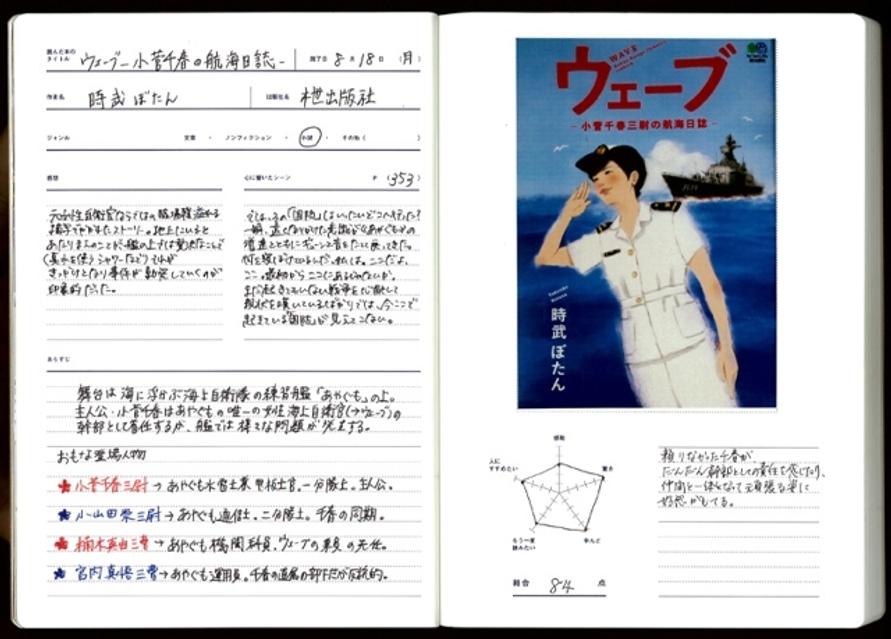 読んだ本の
タイトル ウェーブ―小菅千春の航海日誌― 満了日 8月18日(月)
作者名 時武ぼたん 出版社名 枻出版社
ジャンル 文芸・ノンフィクション・小説・その他( )
感想 心に響いたシーン P(353)
元女性自衛官ならではの臨場感溢れる
描写でかかれたストーリー。地上にいると
あたりまえのことが、艦の上では贅沢なことで
(真水を使うシャワーなど) それが
きっかけとなり事件が勃発していくのが
印象的だった。
では、その「国防」はいったいどこへ行った?
何を寝ぼけているんだ、私は。ここだよ。
ここ。最初からここにあるじゃないか。
まだ起きてもいない戦争を心配して
現状を嘆いているばかりでは、今ここで
起きている「国防」が見えてこない。
あらすじ
舞台は海に浮かぶ海上自衛隊の練習艦「あやぐも」の上。
主人公・小菅千春はあやぐもの唯一の女性海上自衛官(→ウェーブ)の
幹部として着任するが、艦では様々な問題が発生する。
おもな登場人物
★小菅千春三尉→あやぐも水雷士兼甲板士官。一分隊士。主人公。
★小山田栄三尉→あやぐも通信士。二分隊士。千春の同期。
★楠木真由三曹→あやぐも機関科員。ウェーブの乗員の先任。
★宮内真悟三曹→あやぐも運用員。千春の直属の部下だが反抗的。
WAVE
ウェーブ
―小菅千春三尉の航海日誌―
時武ぼたん
感動
驚き
学んだ
もう一度
読みたい
人に
すすめたい
総合 84 点
頼りなかった千春が、
だんだん幹部としての責任を感じたり、
仲間と一体となって頑張る姿に
好感がもてる。